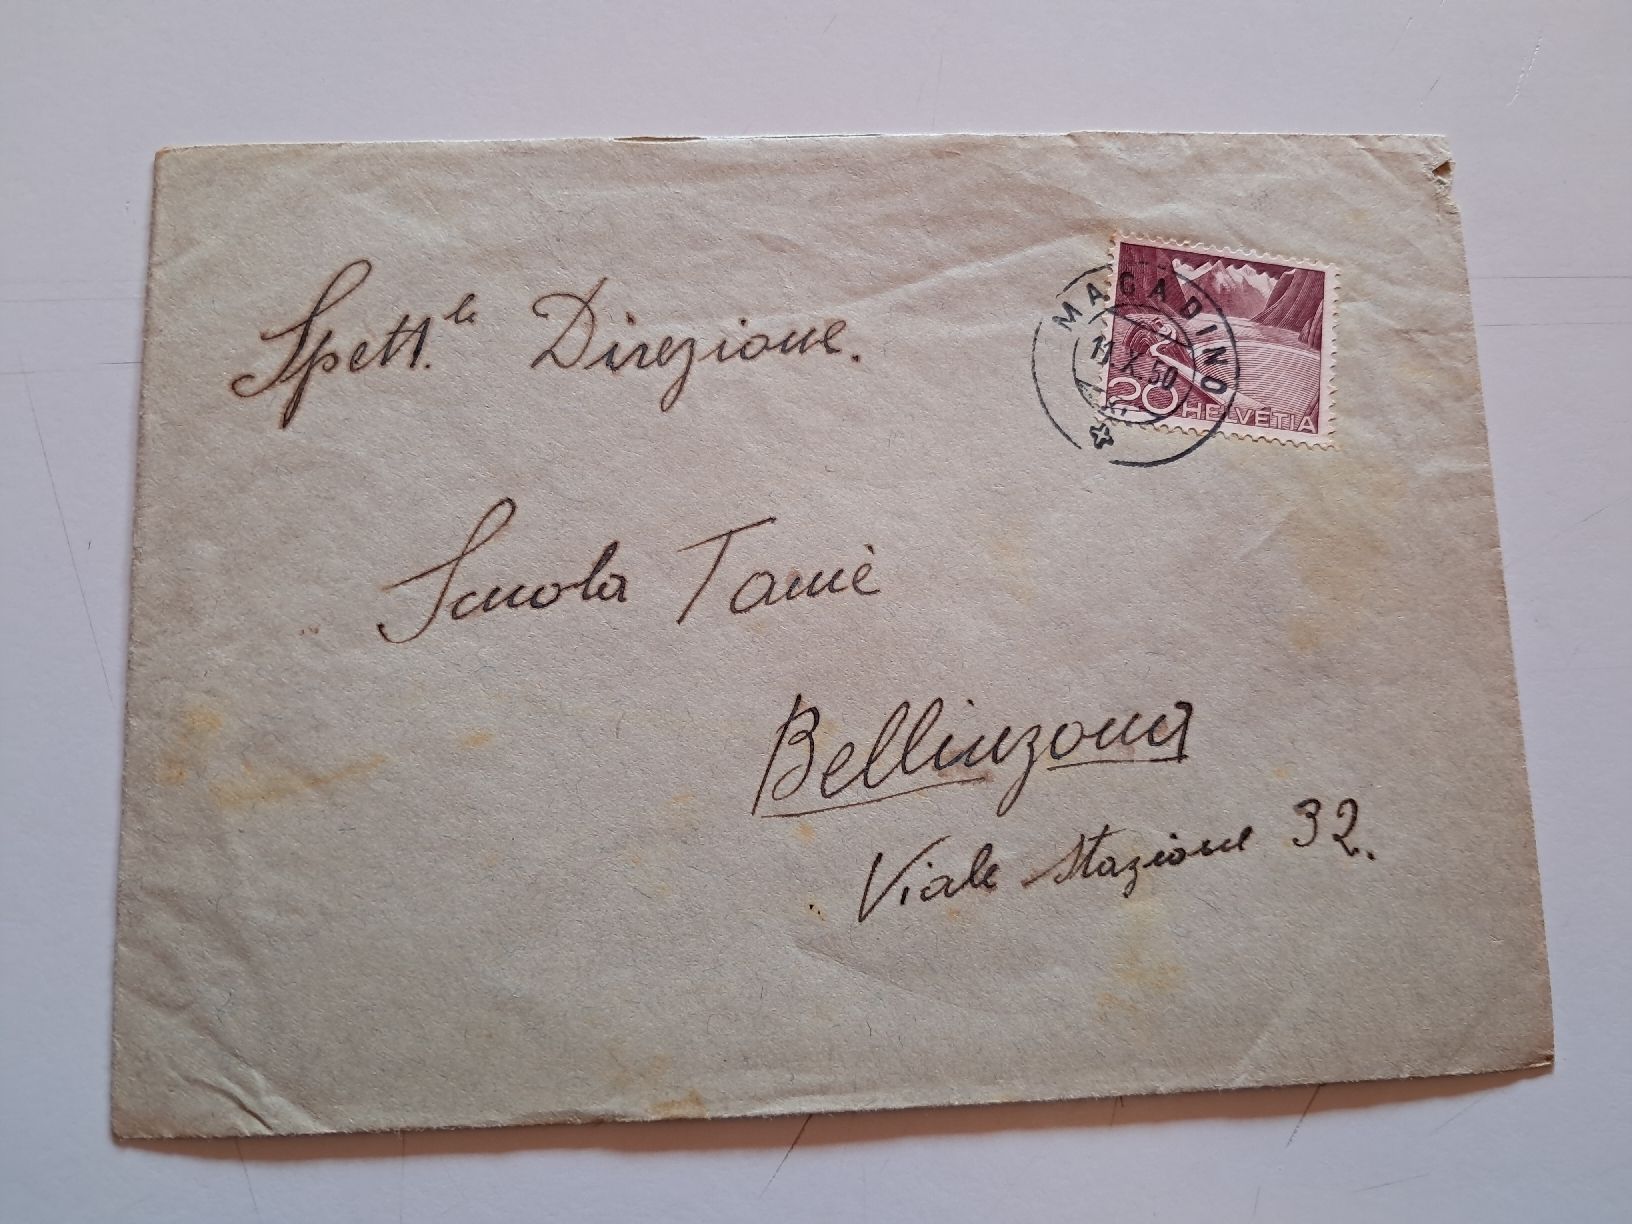 MAGADINO
11.X.50
20 HELVETIA
Spett.le Direzione.
Scuola Tamè
Bellinzona
Viale Stazione 32.